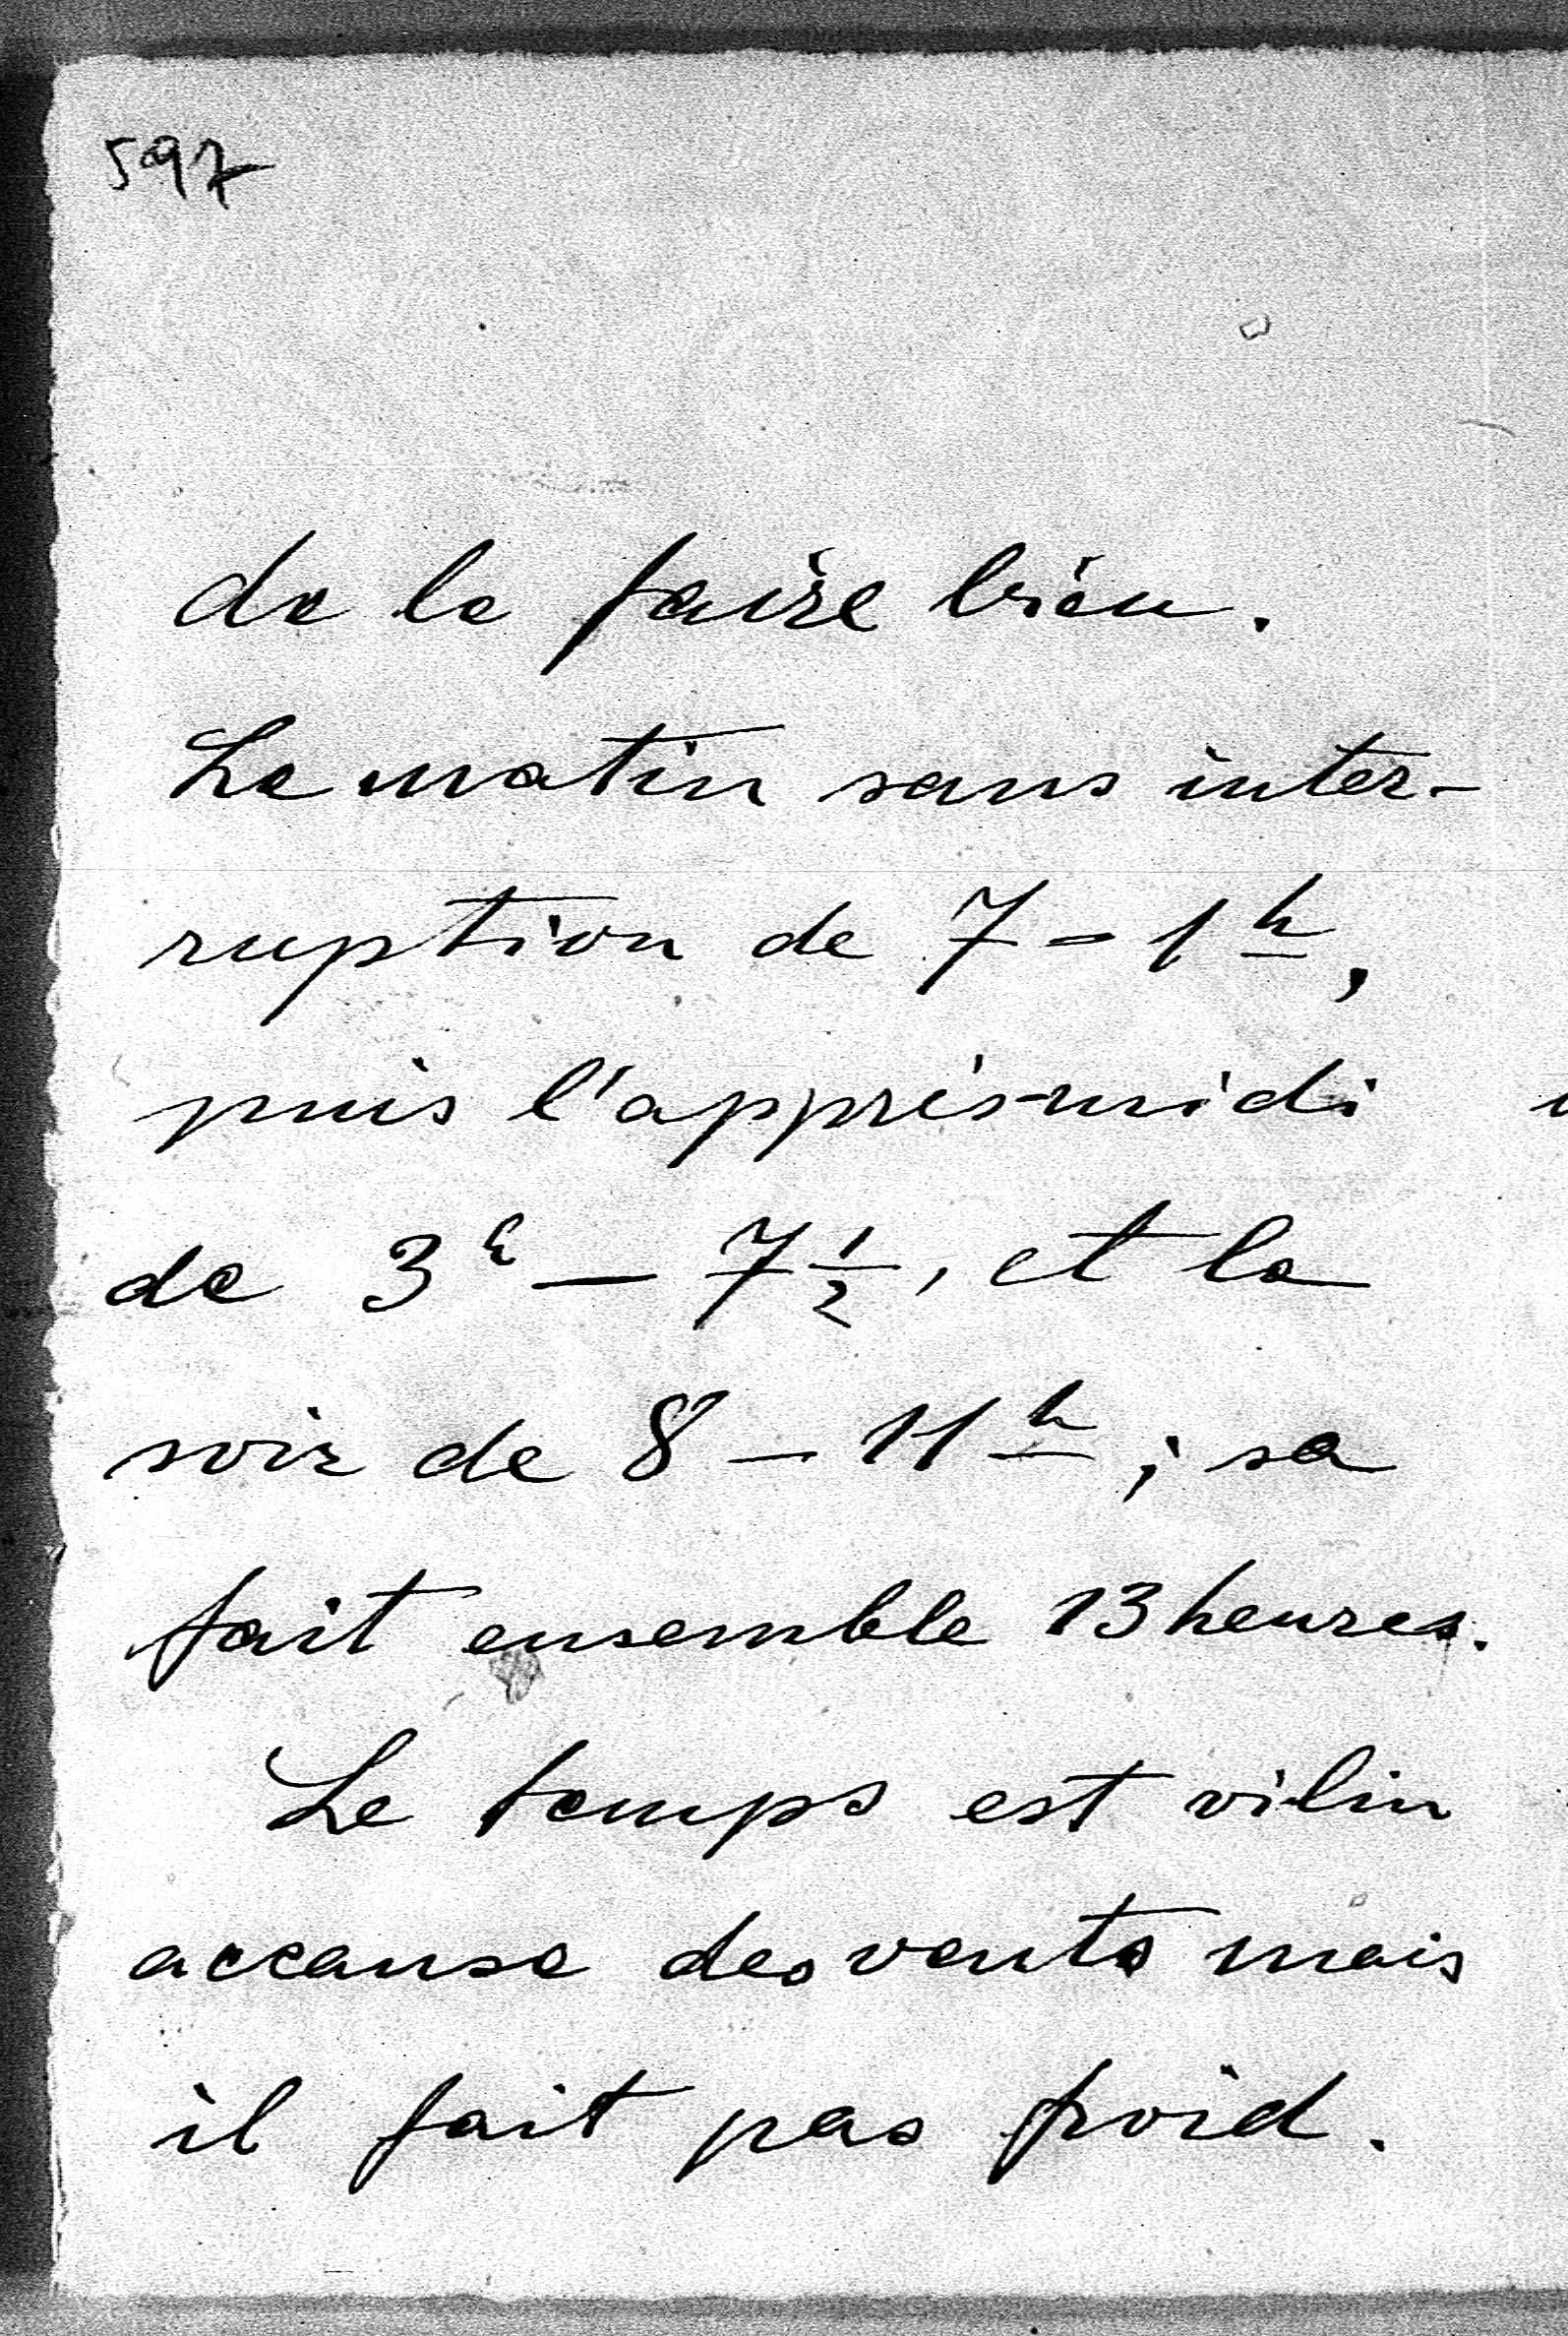 597
de le faire bien.
Le matin sans inter-
ruption de 7 = 1h,
puis l'apprés-midi
de 3h — 7 1/2, et le
soir de 8 — 11h; sa
fait ensemble 13 heures.
Le temps est vilin
accause des vents mais
il fait pas froid.